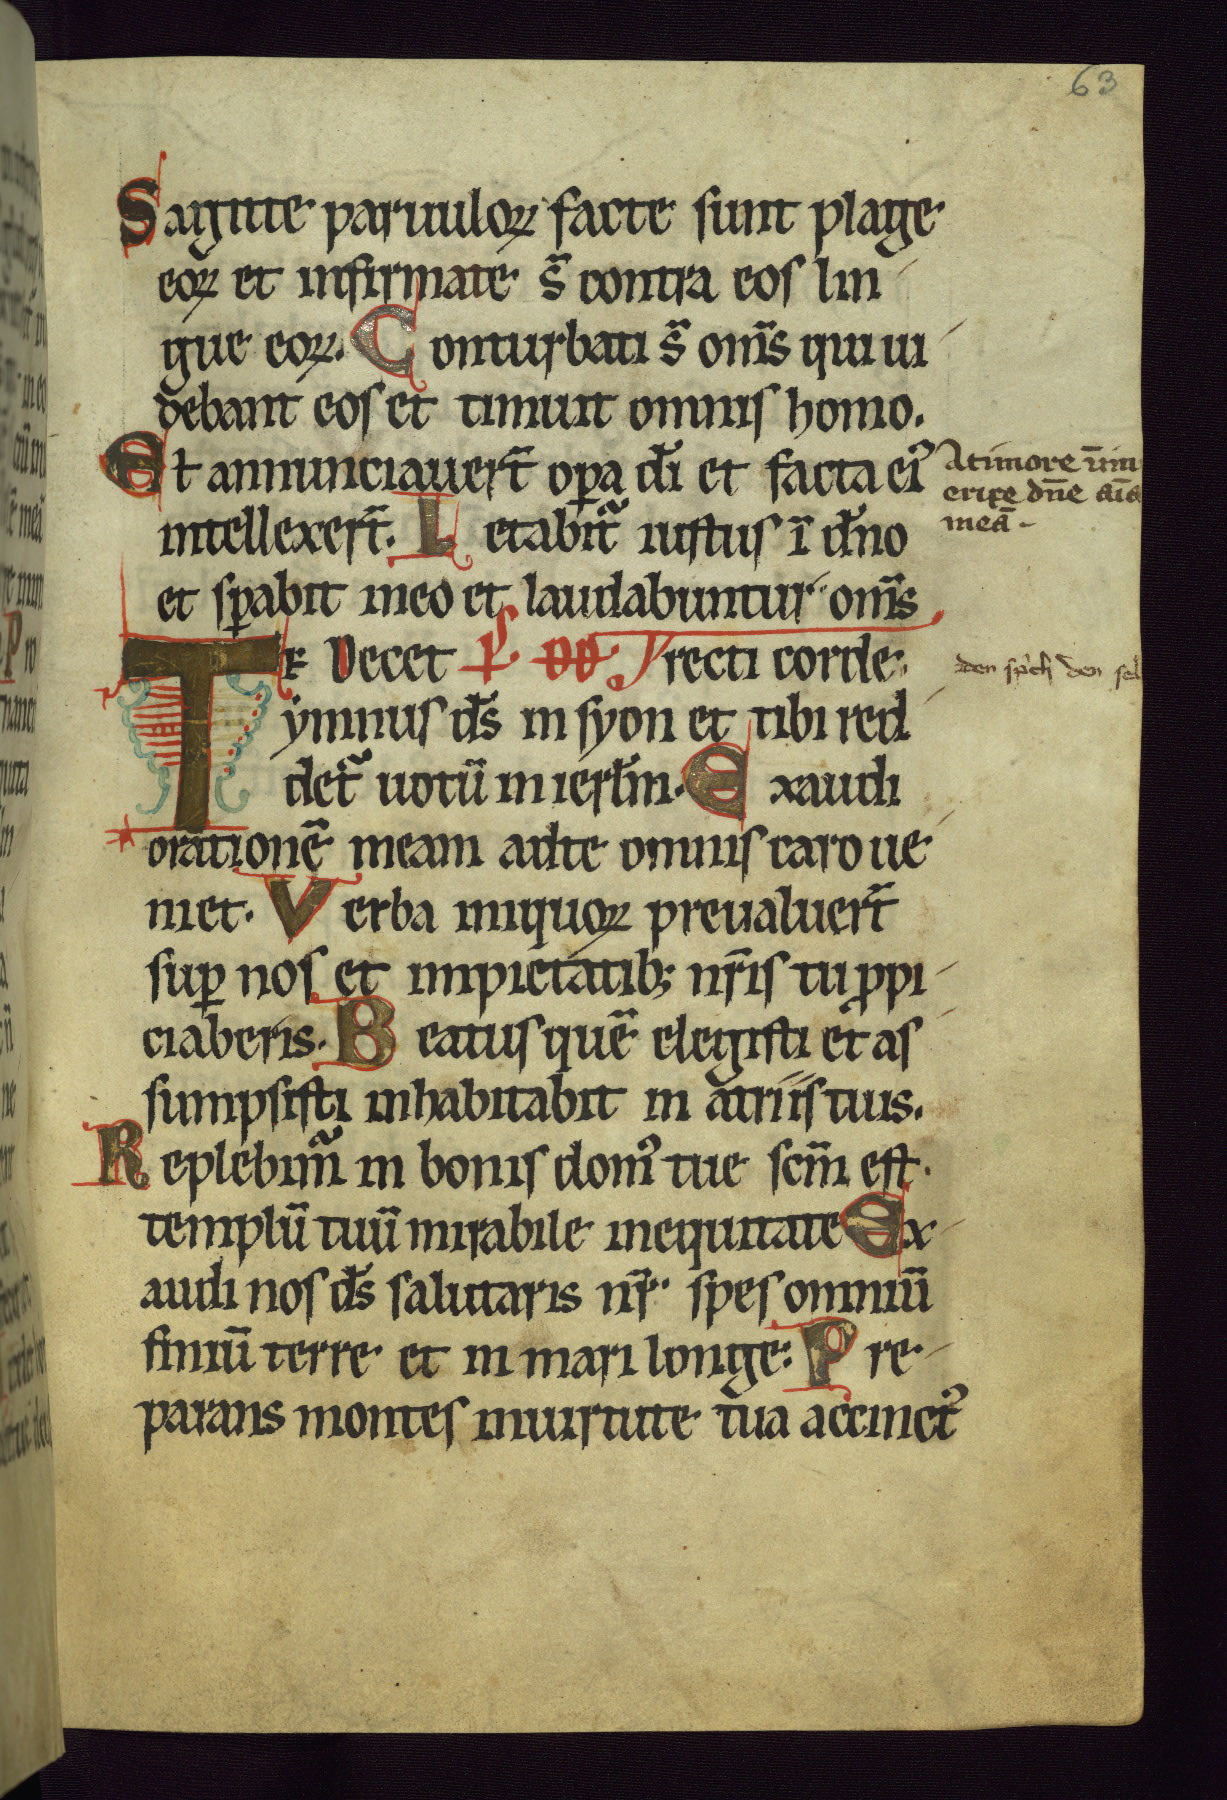 63
Sagitte paruuloꝝ facte sunt plage
eoꝝ et infirmate s̄ contra eos lin
gue eoꝝ. Conturbati s̄ om̄s qui ui
debant eos et timuit omnis homo.
Et annunciauer̄t oꝑa dī et facta eiꝰ
intellexer̄t. Letabit᷑ iustus ī dn̄o
et sꝑabit in eo et laudabuntur om̄s
Te Decet recti corde.
ymnus ds̄ in syon et tibi red
det᷑ uotū in ierl̄m. Exaudi
orationē meam ad te omnis caro ue
niet. Verba iniquoꝝ preualuer̄t
suꝑ nos et impietatibꝫ nr̄is tu ꝓpi
ciaberis. Beatus quē elegisti et as
sumpsisti inhabitabit in atriis tuis.
Replebim᷑ in bonis domꝰ tue scm̄ est
templū tuū mirabile in equitate Ex
audi nos ds̄ salutaris nr̄ spes omniū
finiū terre et in mari longe. Pre
parans montes in uirtute tua accinctꝰ
A timore inim
eripe dn̄e aīa
meā